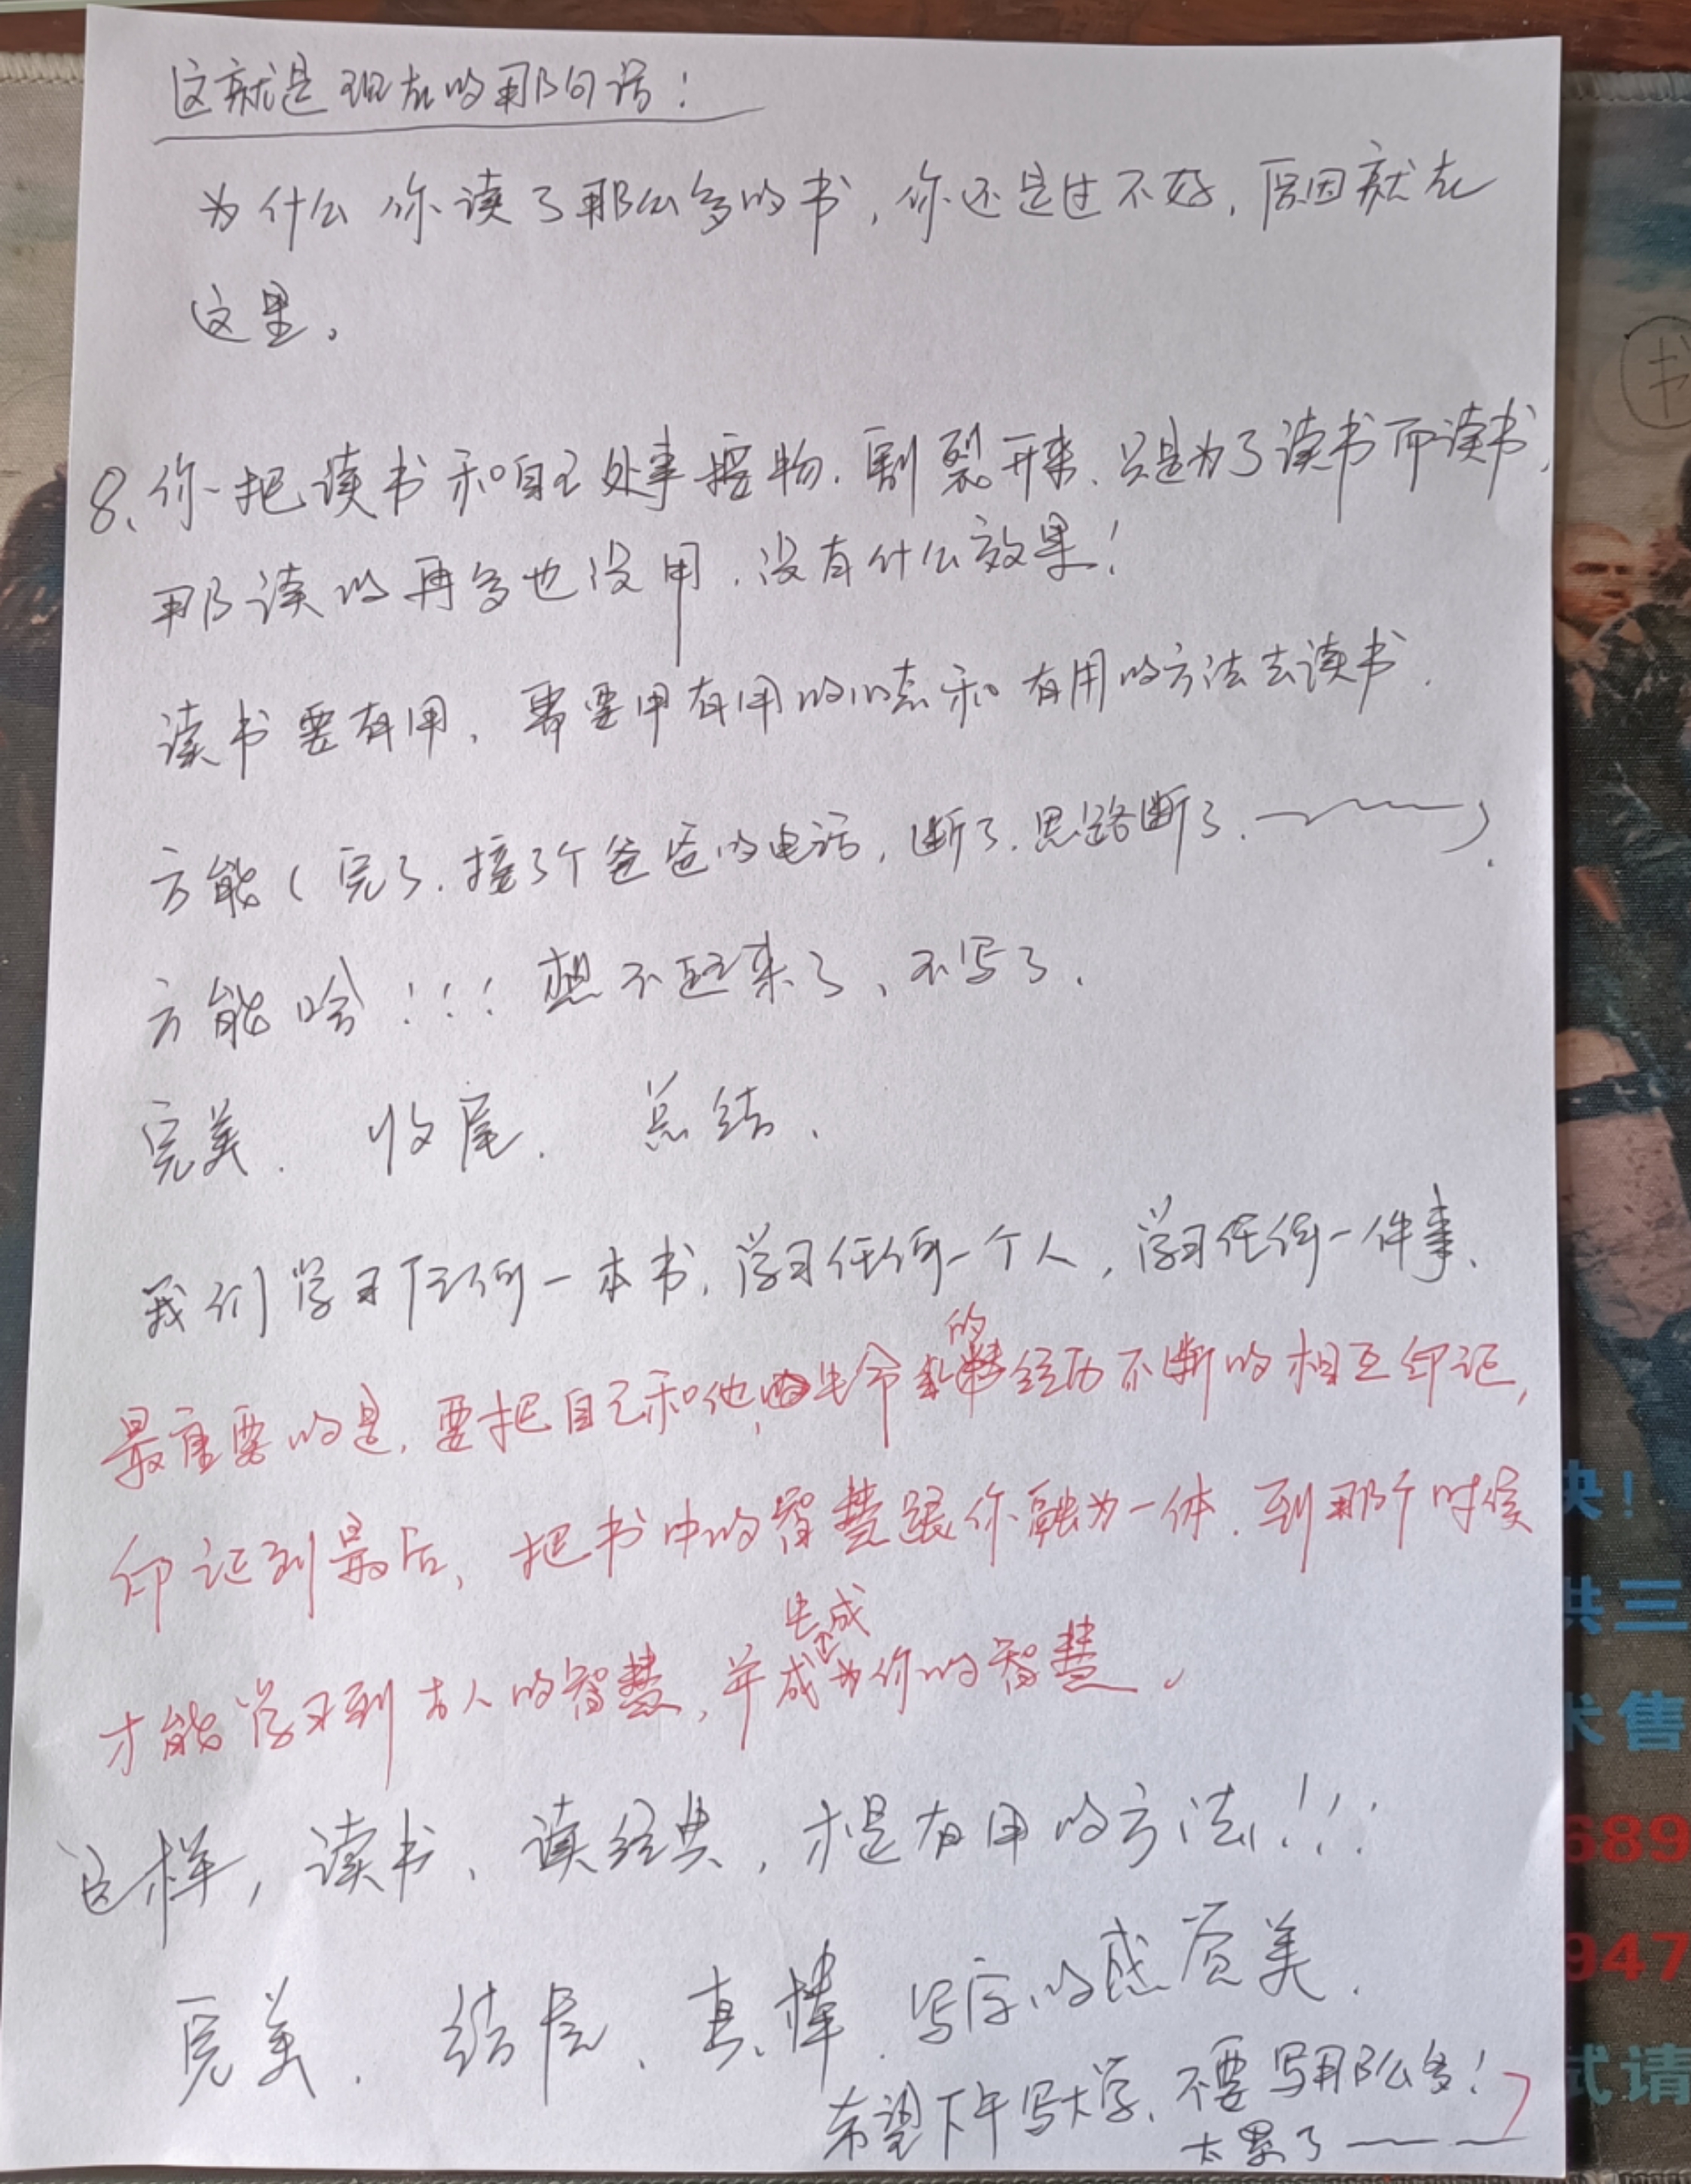 这就是现在的那句话！
为什么你读了那么多的书，你还是过不好，原因就在
这里。
8、你把读书和自己处事接物，割裂开来、只是为了读书而读书，
那读的再多也没用，没有什么效果！
读书要有用，需要用有用的心态和有用的方法去读书．
方能（完了，接了个爸爸的电话，断了，思路断了，～～～）．
方能啥！！！想不起来了、不写了．
完美． 收尾． 总结、
我们学习任何一本书，学习任何一个人，学习任何一件事、
最重要的是，要把自己和他的生命的经历不断的相互印证，
印证到最后，把书中的智慧跟你融为一体．到那个时侯
生成
才能学习到古人的智慧，并成为你的智慧。
这样，读书、读经典，才是有用的方法！！！
完美． 结尾、真棒．写字的感觉美．
希望下午写大学、不要写那么多！
太累了———
书
决！
供三
术售
689
947
试请